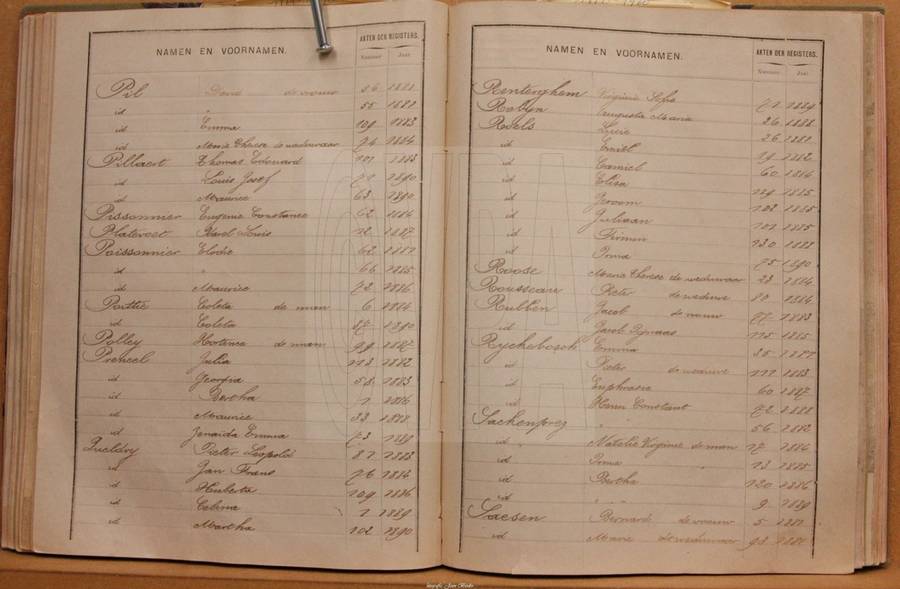 NAMEN EN VOORNAMEN. AKTEN DER REGISTERS.
Nummer Jaar
Pil de vrouw
id " 55 1882
id Emma 109 1883
id Marie Therese de weduwaar 74 1884
Pillaert Thomas Edouard 101 1883
id Louis Josef 71 1890
id Maurice 63 1890
Pissonnier Eugenie Constance 62 1884
Platevoet Karel Louis 12 1887
Poissonnier Elodie 62 1881
id " 66 1885
id Maurice 72 1886
Pottie Coleta de man 6 1884
id Coleta 87 1890
Polley Hortence de man 99 1887
Preneel Julia 113 1882
id Georgia 58 1883
id Bertha 1 1886
id Maurice 33 1888
id Zenaida Emma 73 1889
Queldry Pieter Leopold 81 1883
id Jan Frans 76 1884
id Huberta 109 1886
id Celina 1 1889
id Martha 102 1890
NAMEN EN VOORNAMEN. AKTEN DER REGISTERS.
Nummer Jaar
Renterghem Virginie Sofie 71 1889
Augusta Maria 26 1888
Roels Lucie 26 1881
id Emiel 19 1882
id Camiel 60 1884
id Elisa 119 1885
id Jeroom 102 1885
id Juliaan 101 1885
id Firmin 130 1888
id Irma 75 1890
Roose Marie Therese de weduwaar 23 1884
Rousseau Pieter de weduwe 80 1884
Rubben Jacob de vrouw 77 1883
id Jacob Ignaas 115 1885
Ryckebosch Emma 35 1881
id Pieter de weduwe 111 1883
id Euphrasie 60 1887
id Henri Constant 72 1888
Sachenprez " " 56 1882
id Natalie Virginie de man 17 1884
id Irma " 13 1885
id Bertha 120 1886
id " " 9 1889
Saesen Bernard de vrouw 5 1881
id Marie de weduwaar 93 1881